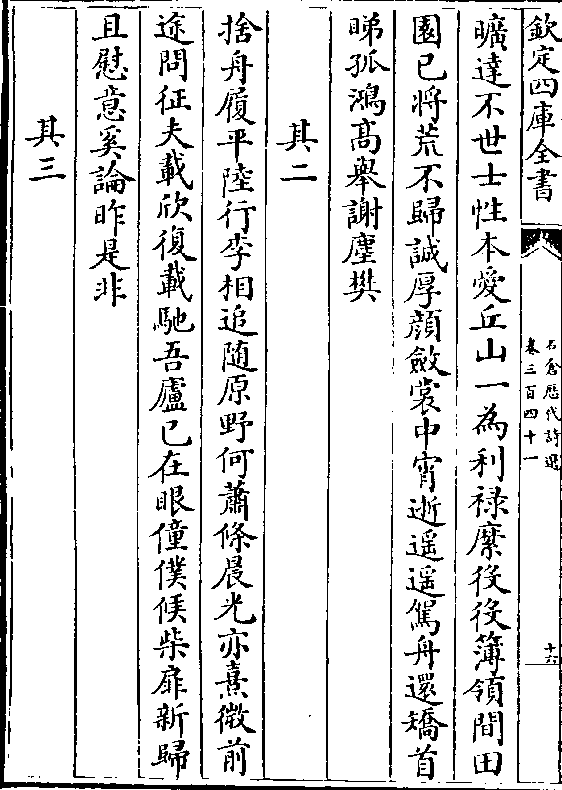 欽定四庫全書
石倉歷代詩選
卷三百四十一
十六
曠達不世士性本愛丘山一為利禄縻役役簿領間田
園已將荒不歸誠厚顔斂裳中宵逝遥遥駕舟還矯首
睇孤鴻髙舉謝塵樊
其二
捨舟履平陸行李相追随原野何蕭條晨光亦熹微前
途問征夫載欣復載馳吾廬已在眼僮僕候柴扉新歸
且慰意奚論昨是非
其三